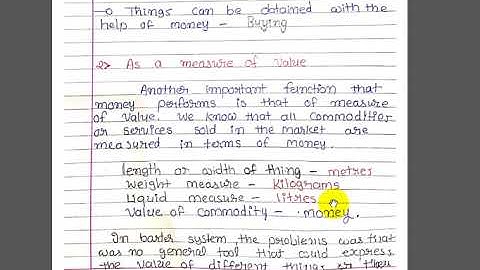 → Things can be obtained with the
help of money - Buying
2) As a measure of value
Another important function that
money performs is that of measure
of value. We know that all commodities
or services sold in the market are
measured in terms of money.
length or width of thing - metres
weight measure - Kilograms
Liquid measure - litres
value of commodity - money.
In barter system, the problems was that
was no general tool that could express
the value of different things or then